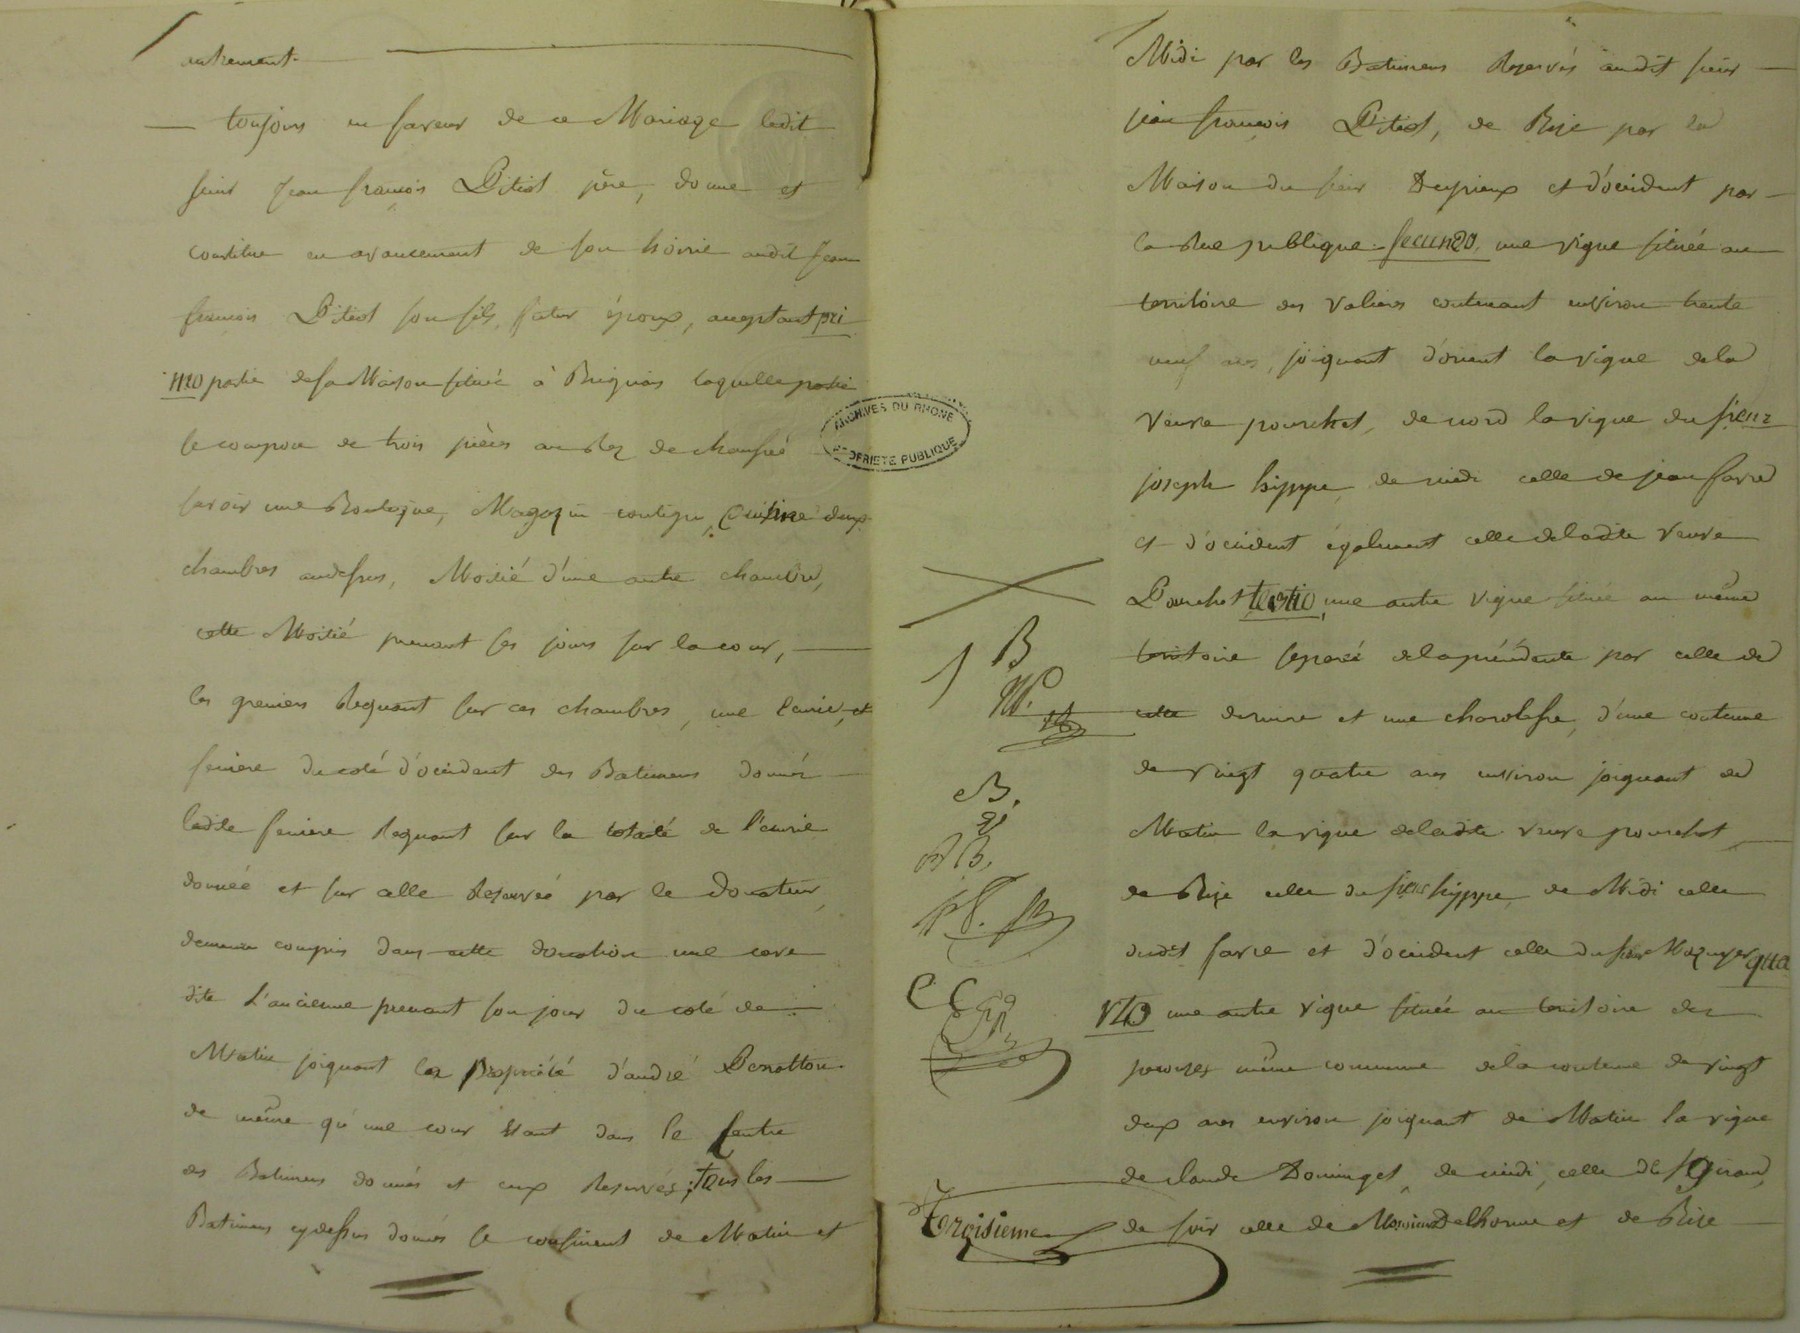 autrement.
toujours en faveur de ce Mariage ledit
sieur Jean françois Pitiot père, donne et
constitue en avancement de son hoirie audit Jean
françois Pitiot son fils, futur époux, acceptant pri
mo partie de sa Maison située à Brignais laquelle partie
se compose de trois pièces au Rez de chaussée
savoir une Boutique, Magazin contigu, Cuisine deux
chambres audessus, Moitié d'une autre chambre,
cette Moitié prenant ses jours sur la cour,
les greniers Regnant sur ces chambres, une Ecurie, et
feniere du coté d'occident des Batimens donnés
ladite feniere Regnant sur la totalité de l'écurie
donnée et sur celle Reservée par le Donateur,
demeure compris dans cette donation une cave
dite L'ancienne prenant son jour du coté de
Matin joignant la Propriété d'andré
de même qu'une cour étant dans le Centre
des Batimens donnés et ceux Reservés; tous les
Batimens cydessus donnés se confinent de Matin et
ARCHIVES DU RHONE
PROPRIETE PUBLIQUE
Midi par les Batimens Reservés audit sieur
jean françois Pitiot, de Bize par la
Maison du sieur et d'occident par
la Rue publique. Secundo, une vigne située au
territoire des Valieres contenant environ trente
neuf ares, joignant d'orient la vigne de la
Veuve pourchet, de nord la vigne du sieur
joseph hyppe, de midi celle de jean favre
et d'occident également celle de ladite Veuve
Pourchet tertio, une autre vigne située au même
territoire separée de la précédente par celle de
cette derniere et une charolasse, d'une contenue
de vingt quatre ares environ joignant de
Matin la vigne de ladite veuve pourchet,
de Bize celle du sieur hyppe, de Midi celle
dudit favre et d'occident celle du sieur Mazuyer qua
rto une autre vigne située au territoire des
même commune de la contenue de vingt
deux ares environ joignant de Matin la vigne
de claude Dominget, de midi, celle de
de soir celle de Monsieur Delhorme et de Bize
B
B.
troisieme